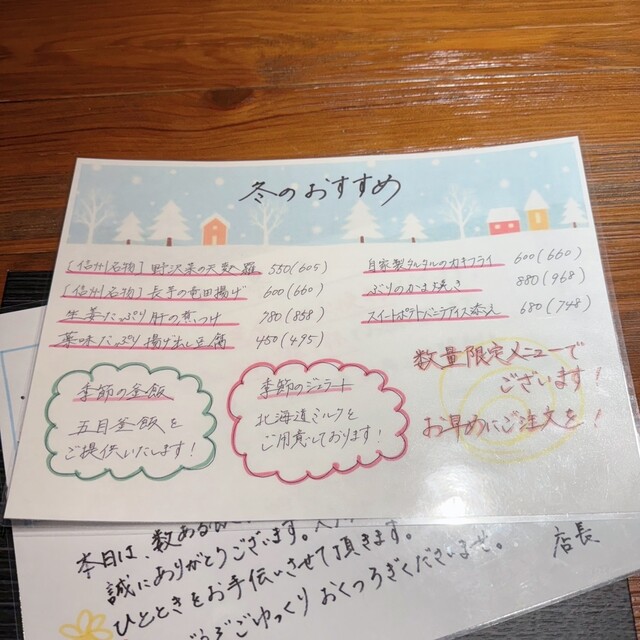 冬のおすすめ
[信州名物] 野沢菜の天麩羅 550(605)
[信州名物] 長芋の竜田揚げ 600(660)
生姜たっぷり 肝の煮つけ 780(858)
薬味たっぷり 揚げ出し豆腐 450(495)
自家製タルタルのカキフライ 600(660)
ぶりのかま焼き 880(968)
スイートポテトバニラアイス添え 680(748)
季節の釜飯
五目釜飯を
ご提供いたします!
季節のジェラート
北海道ミルクを
ご用意しております!
数量限定メニューで
ございます!
お早めにご注文を!
本日は、数ある
誠にありがとうございます。
ひとときをお手伝いさせて頂きます。
ごゆっくり おくつろぎくださいませ。
店長